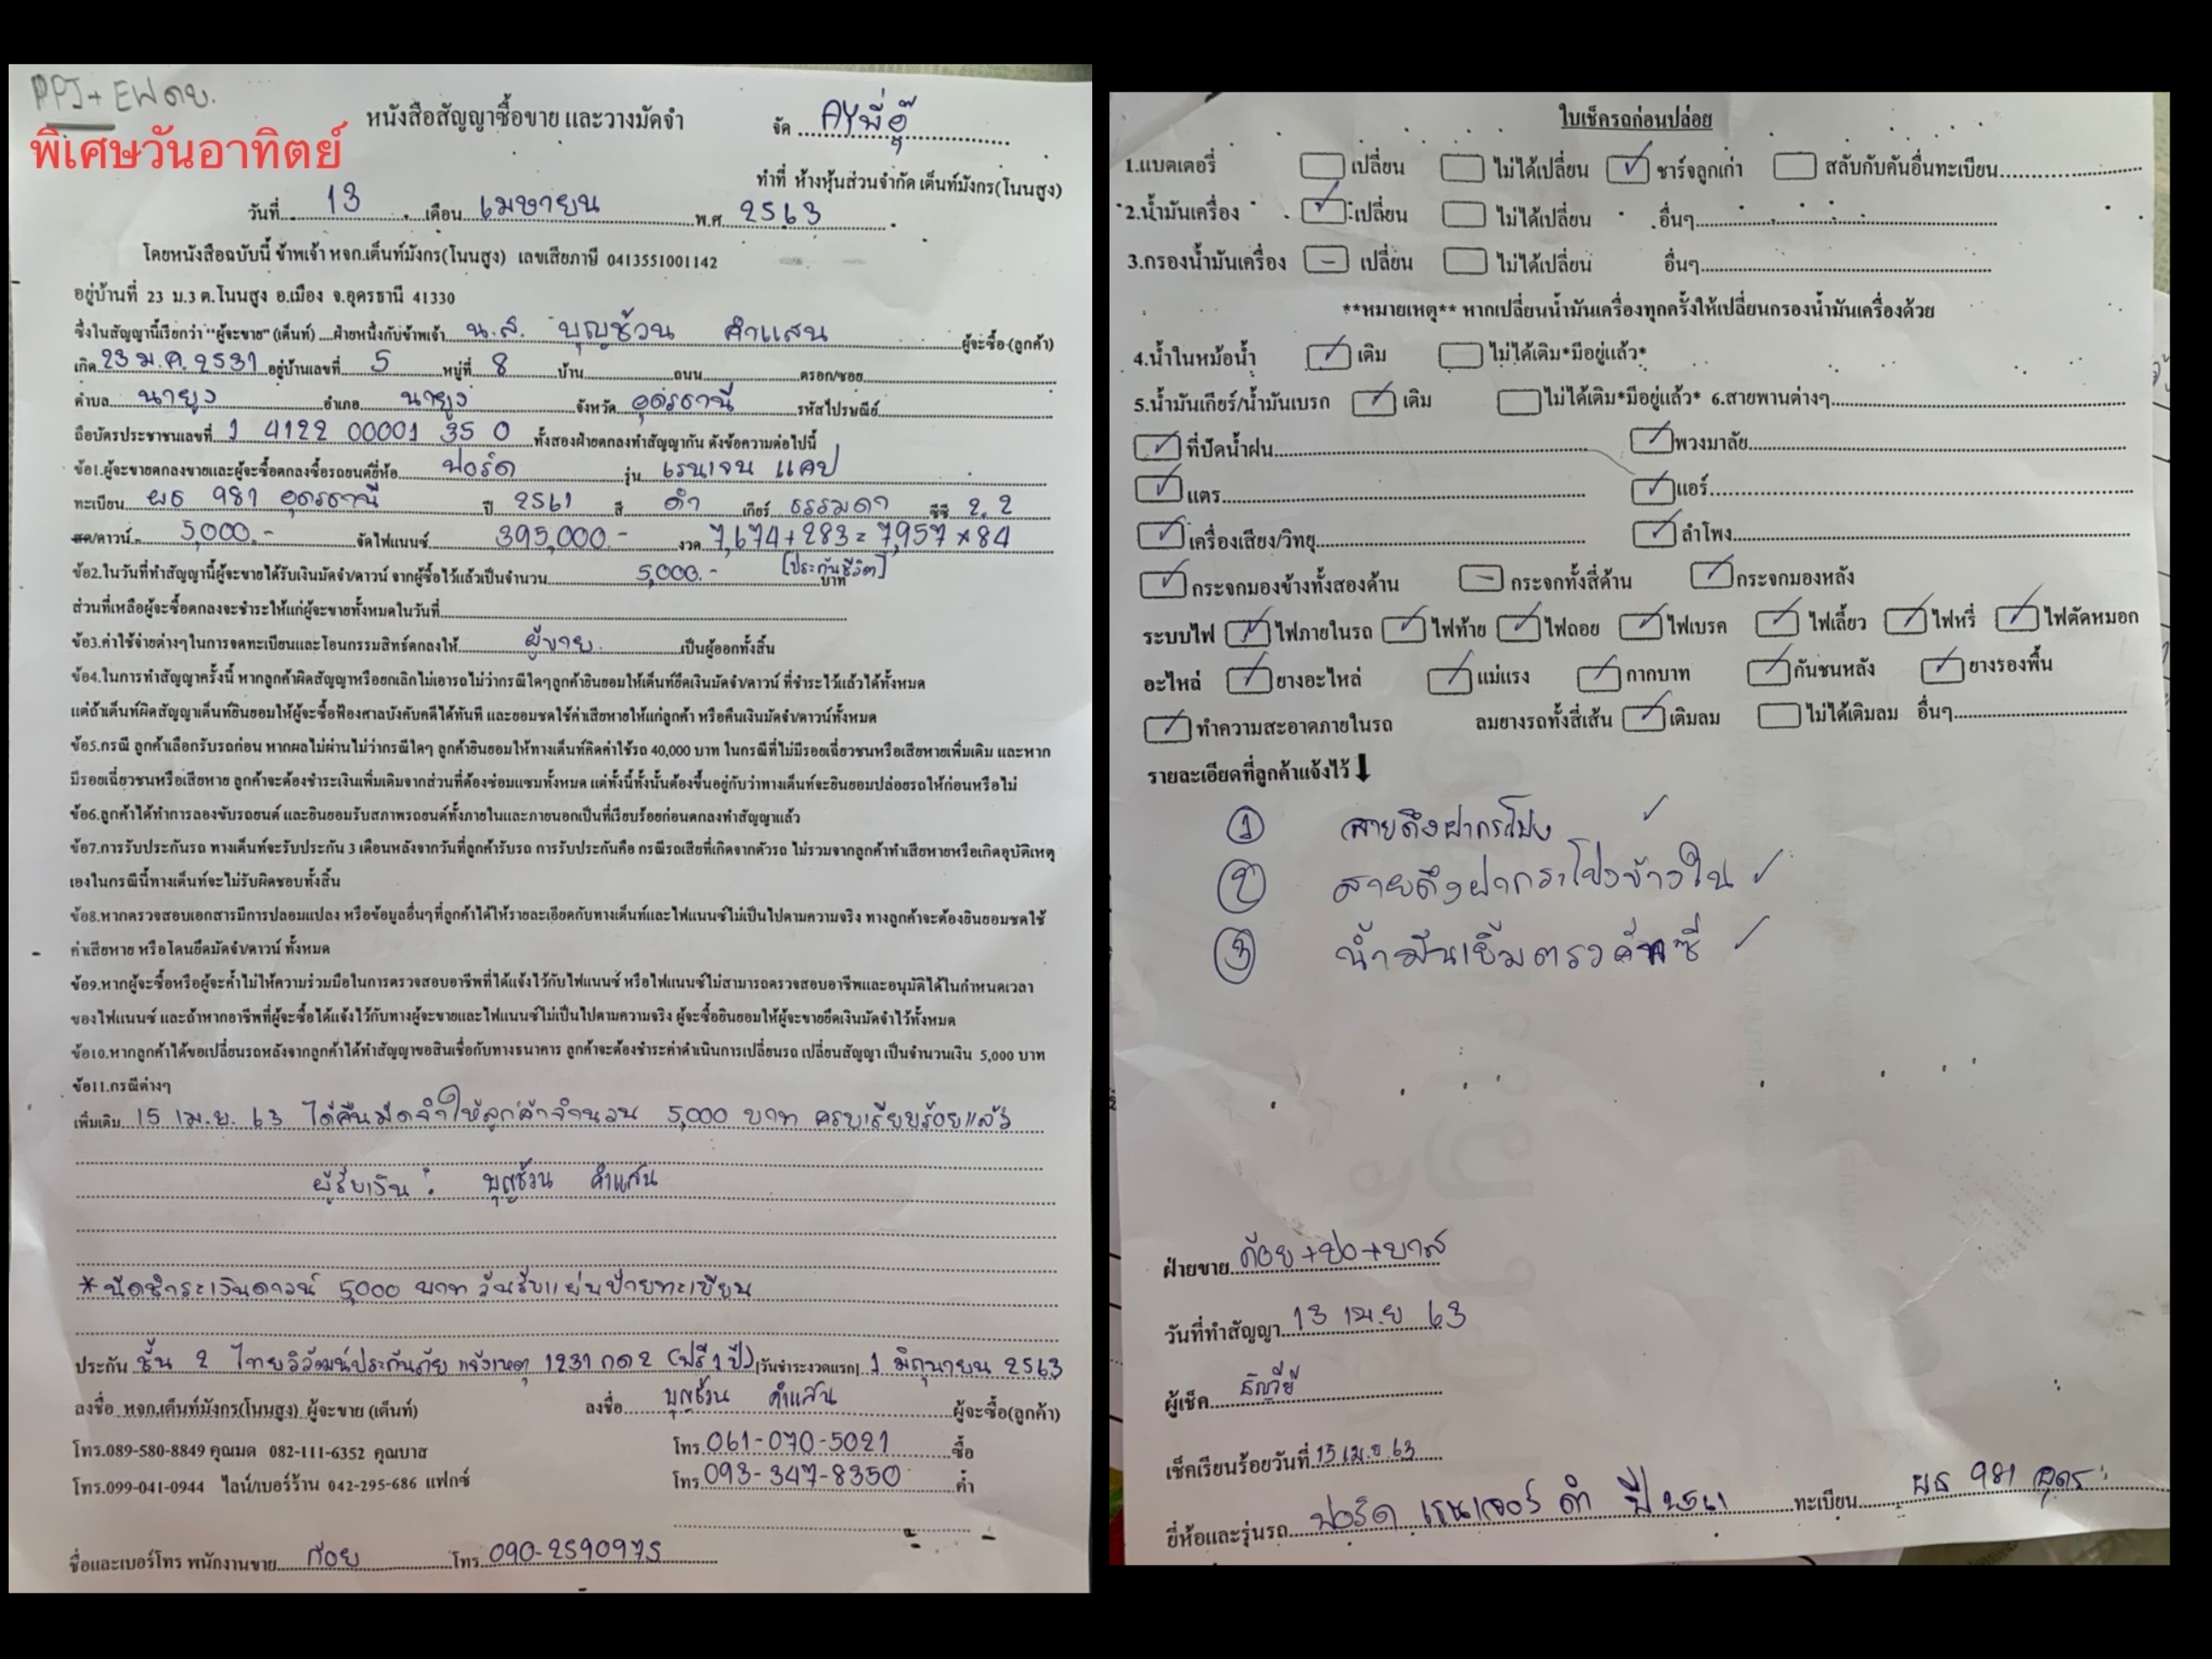 PPJ+ EW ดบ.
พิเศษวันอาทิตย์
หนังสือสัญญาซื้อขาย และวางมัดจำ
จัด AYพี่อู๊
ทำที่ ห้างหุ้นส่วนจำกัด เต็นท์มังกร(โนนสูง)
วันที่ 13 เดือน เมษายน พ.ศ 2563
โดยหนังสือฉบับนี้ ข้าพเจ้า หจก.เต็นท์มังกร(โนนสูง) เลขเสียภาษี 0413551001142
อยู่บ้านที่ 23 ม.3 ต.โนนสูง อ.เมือง จ.อุดรธานี 41330
ซึ่งในสัญญานี้เรียกว่า "ผู้จะขาย" (เต็นท์) ....ฝ่ายหนึ่งกับข้าพเจ้า น.ส. บุญช้วน คำแสน ผู้จะซื้อ (ลูกค้า)
เกิด 23 ม.ค. 2531 อยู่บ้านเลขที่ 5 หมู่ที่ 8 บ้าน ถนน ตรอก/ซอย
ตำบล นายูง อำเภอ นายูง จังหวัด อุดรธานี รหัสไปรษณีย์
ถือบัตรประชาชนเลขที่ 1 4122 00001 35 0 ทั้งสองฝ่ายตกลงทำสัญญากัน ดังข้อความต่อไปนี้
ข้อ1.ผู้จะขายตกลงขายและผู้จะซื้อตกลงซื้อรถยนต์ยี่ห้อ ฟอร์ด รุ่น เรนเจน แคป
ทะเบียน ผธ 981 อุดรธานี ปี 2561 สี ดำ เกียร์ ธรรมดา ซีซี 2.2
สด/ดาวน์ 5,000.- จัดไฟแนนซ์ 395,000.- งวด 7,674+283=7,957×84
ข้อ2.ในวันที่ทำสัญญานี้ผู้จะขายได้รับเงินมัดจำ/ดาวน์ จากผู้ซื้อไว้แล้วเป็นจำนวน 5,000.- บาท [ประกันชีวิต]
ส่วนที่เหลือผู้จะซื้อตกลงจะชำระให้แก่ผู้จะขายทั้งหมดในวันที่
ข้อ3.ค่าใช้จ่ายต่างๆในการจดทะเบียนและโอนกรรมสิทธ์ตกลงให้ ผู้ขาย เป็นผู้ออกทั้งสิ้น
ข้อ4.ในการทำสัญญาครั้งนี้ หากลูกค้าผิดสัญญาหรือยกเลิกไม่เอารถ ไม่ว่ากรณีใดๆลูกค้ายินยอมให้เต็นท์ยึดเงินมัดจำ/ดาวน์ ที่ชำระไว้แล้วได้ทั้งหมด
แต่ถ้าเต็นท์ผิดสัญญาเต็นท์ยินยอมให้ผู้จะซื้อฟ้องศาลบังคับคดีได้ทันที และยอมชดใช้ค่าเสียหายให้แก่ลูกค้า หรือคืนเงินมัดจำ/ดาวน์ทั้งหมด
ข้อ5.กรณี ลูกค้าเลือกรับรถก่อน หากผลไม่ผ่านไม่ว่ากรณีใดๆ ลูกค้ายินยอมให้ทางเต็นท์คิดค่าใช้รถ 40,000 บาท ในกรณีที่ไม่มีรอยเฉี่ยวชนหรือเสียหายเพิ่มเติม และหาก
มีรอยเฉี่ยวชนหรือเสียหาย ลูกค้าจะต้องชำระเงินเพิ่มเติมจากส่วนที่ต้องซ่อมแซมทั้งหมด แต่ทั้งนี้ทั้งนั้นต้องขึ้นอยู่กับว่าทางเต็นท์จะยินยอมปล่อยรถให้ก่อนหรือไม่
ข้อ6.ลูกค้าได้ทำการลองขับรถยนต์ และยินยอมรับสภาพรถยนต์ทั้งภายในและภายนอกเป็นที่เรียบร้อยก่อนตกลงทำสัญญาแล้ว
ข้อ7.การรับประกันรถ ทางเต็นท์จะรับประกัน 3 เดือนหลังจากวันที่ลูกค้ารับรถ การรับประกันคือ กรณีรถเสียที่เกิดจากตัวรถ ไม่รวมจากลูกค้าทำเสียหายหรือเกิดอุบัติเหตุ
เองในกรณีนี้ทางเต็นท์จะไม่รับผิดชอบทั้งสิ้น
ข้อ8.หากตรวจสอบเอกสารมีการปลอมแปลง หรือข้อมูลอื่นๆที่ลูกค้าได้ให้รายละเอียดกับทางเต็นท์และไฟแนนซ์ไม่เป็นไปตามความจริง ทางลูกค้าจะต้องยินยอมชดใช้
ค่าเสียหาย หรือโดนยึดมัดจำ/ดาวน์ ทั้งหมด
ข้อ9.หากผู้จะซื้อหรือผู้จะค้ำไม่ให้ความร่วมมือในการตรวจสอบอาชีพที่ได้แจ้งไว้กับไฟแนนซ์ หรือไฟแนนซ์ไม่สามารถตรวจสอบอาชีพและอนุมัติได้ในกำหนดเวลา
ของไฟแนนซ์ และถ้าหากอาชีพที่ผู้จะซื้อได้แจ้งไว้กับทางผู้จะขายและไฟแนนซ์ไม่เป็นไปตามความจริง ผู้จะซื้อยินยอมให้ผู้จะขายยึดเงินมัดจำไว้ทั้งหมด
ข้อ10.หากลูกค้าได้ขอเปลี่ยนรถหลังจากลูกค้าได้ทำสัญญาขอสินเชื่อกับทางธนาคาร ลูกค้าจะต้องชำระค่าดำเนินการเปลี่ยนรถ เปลี่ยนสัญญา เป็นจำนวนเงิน 5,000 บาท
ข้อ11.กรณีต่างๆ
เพิ่มเติม 15 เม.ย. 63 ได้คืนมัดจำให้ลูกค้าจำนวน 5,000 บาท ครบเรียบร้อยแล้ว
ผู้รับเงิน : บุญช้วน คำแสน
*นัดชำระเงินดาวน์ 5,000 บาท วันรับแผ่นป้ายทะเบียน
ประกัน ชั้น 2 ไทยวิวัฒน์ประกันภัย แจ้งเหตุ 1231 กด 2 (ฟรี 1 ปี) [วันชำระงวดแรก] 1 มิถุนายน 2563
ลงชื่อ หจก.เต็นท์มังกร(โนนสูง) ผู้จะขาย (เต็นท์) ลงชื่อ บุญช้วน คำแสน ผู้จะซื้อ(ลูกค้า)
โทร.089-580-8849 คุณมด 082-111-6352 คุณบาส โทร 061-070-5021 ซื้อ
โทร.099-041-0944 ไลน์/เบอร์ร้าน 042-295-686 แฟกซ์ โทร 093-347-8350 ค้ำ
ชื่อและเบอร์โทร พนักงานขาย ก้อย โทร. 090-2590975
ใบเช็ครถก่อนปล่อย
1.แบตเตอรี่ เปลี่ยน ไม่ได้เปลี่ยน ✓ ชาร์จลูกเก่า สลับกับคันอื่นทะเบียน
2.น้ำมันเครื่อง ✓ เปลี่ยน ไม่ได้เปลี่ยน อื่นๆ
3.กรองน้ำมันเครื่อง - เปลี่ยน ไม่ได้เปลี่ยน อื่นๆ
**หมายเหตุ** หากเปลี่ยนน้ำมันเครื่องทุกครั้งให้เปลี่ยนกรองน้ำมันเครื่องด้วย
4.น้ำในหม้อน้ำ ✓ เติม ไม่ได้เติม*มีอยู่แล้ว*
5.น้ำมันเกียร์/น้ำมันเบรก ✓ เติม ไม่ได้เติม*มีอยู่แล้ว* 6.สายพานต่างๆ
✓ ที่ปัดน้ำฝน ✓ พวงมาลัย
✓ แตร ✓ แอร์
✓ เครื่องเสียง/วิทยุ ✓ ลำโพง
✓ กระจกมองข้างทั้งสองด้าน - กระจกทั้งสี่ด้าน ✓ กระจกมองหลัง
ระบบไฟ ✓ ไฟภายในรถ ✓ ไฟท้าย ✓ ไฟถอย ✓ ไฟเบรค ✓ ไฟเลี้ยว ✓ ไฟหรี่ ✓ ไฟตัดหมอก
อะไหล่ ✓ ยางอะไหล่ ✓ แม่แรง ✓ กากบาท ✓ กันชนหลัง ✓ ยางรองพื้น
✓ ทำความสะอาดภายในรถ ลมยางรถทั้งสี่เส้น ✓ เติมลม ไม่ได้เติมลม อื่นๆ
รายละเอียดที่ลูกค้าแจ้งไว้ ⬇
① สายดึงฝากระโปง ✓
② สายดึงฝากระโปงข้างใน ✓
③ น้ำมันเยิ้มตรงคัทซี ✓
ฝ่ายขาย ก้อย+ปอ+บาส
วันที่ทำสัญญา 13 เม.ย 63
ผู้เช็ค
เช็คเรียบร้อยวันที่ 15 เม.ย 63
ยี่ห้อและรุ่นรถ ฟอร์ด เรนเจอร์ ดำ ปี 2561 ทะเบียน ผธ 981 อุดร